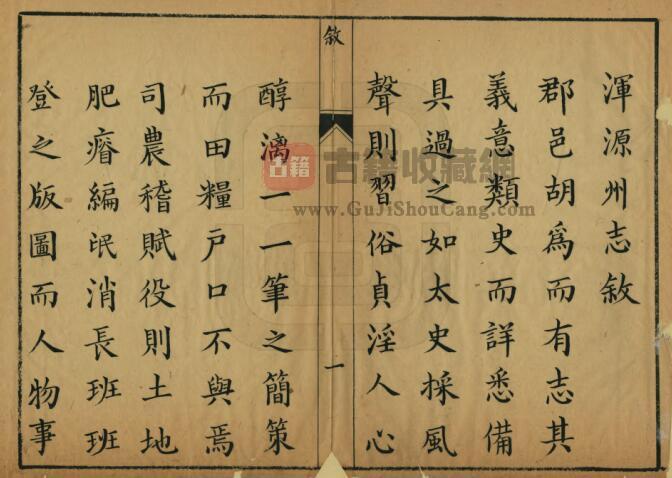 渾源州志敘
郡邑胡爲而有志其
義意類史而詳悉備
具過之如太史採風
聲則習俗貞淫人心
敘
一
醇漓一一筆之簡策
而田糧戶口不與焉
司農稽賦役則土地
肥瘠編氓消長班班
登之版圖而人物事
古籍
古籍收藏網
www.GuJiShouCang.com